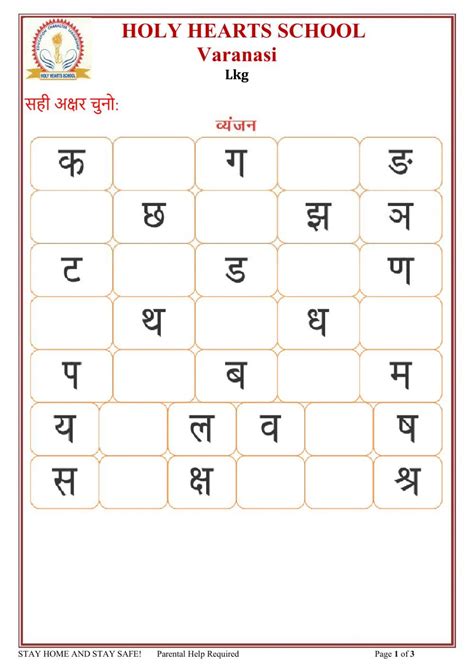 HOLY HEARTS SCHOOL
Varanasi
Lkg
HOLY HEARTS SCHOOL
सही अक्षर चुनो:
व्यंजन
क ग ङ
छ झ ञ
ट ड ण
थ ध
प ब म
य ल व ष
स क्ष श्र
STAY HOME AND STAY SAFE! Parental Help Required Page 1 of 3